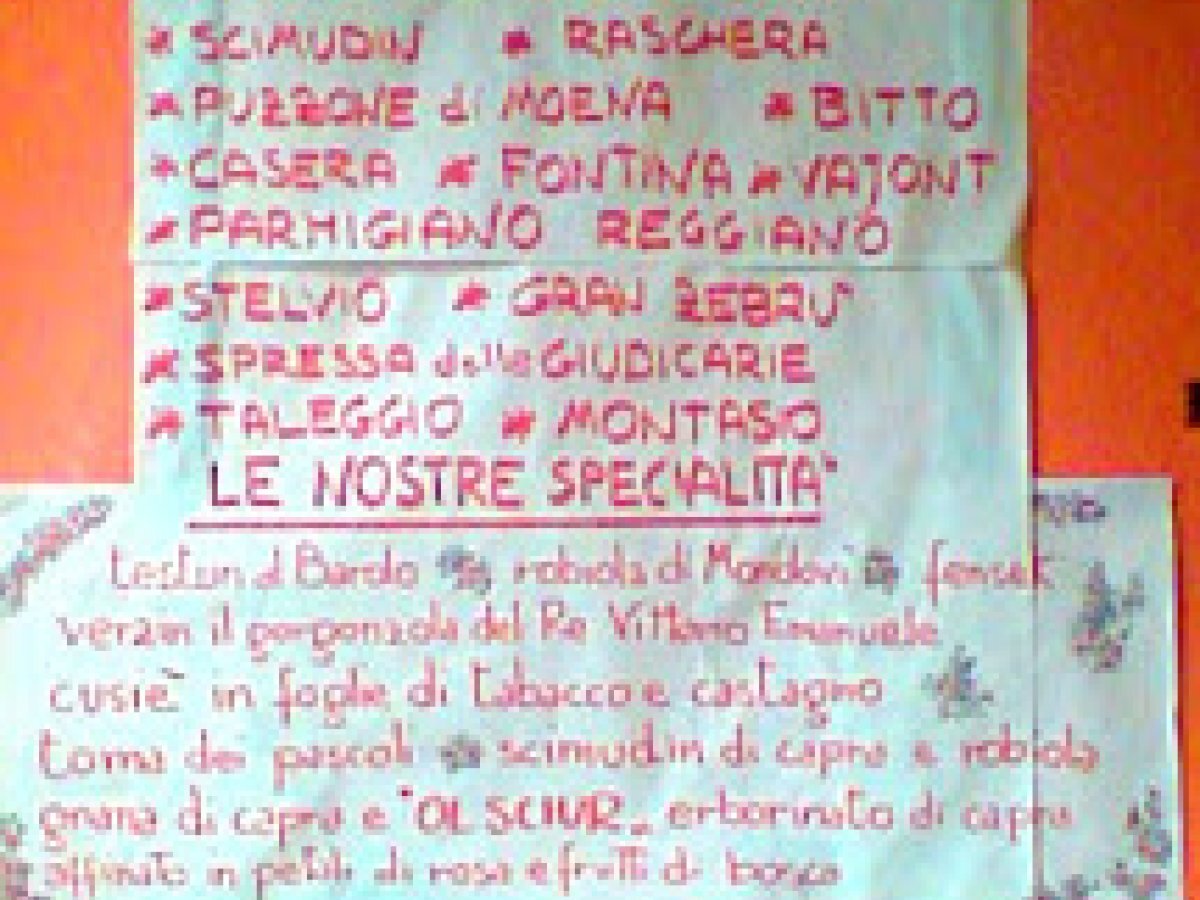 * SCIMUDIN * RASCHERA
* PUZZONE di MOENA * BITTO
* CASERA * FONTINA * VAJONT
* PARMIGIANO REGGIANO
* STELVIO * GRAN ZEBRU'
* SPRESSA delle GIUDICARIE
* TALEGGIO * MONTASIO
LE NOSTRE SPECIALITA'
testun al Barolo robiola di Mondovi'
verzin il gorgonzola del Re Vittorio Emanuele
cusiè in foglie di tabacco e castagno
toma dei pascoli scimudin di capra e robiola
grana di capra e "OL SCIUR" erborinato di capra
affinato in petali di rosa e frutti di bosco